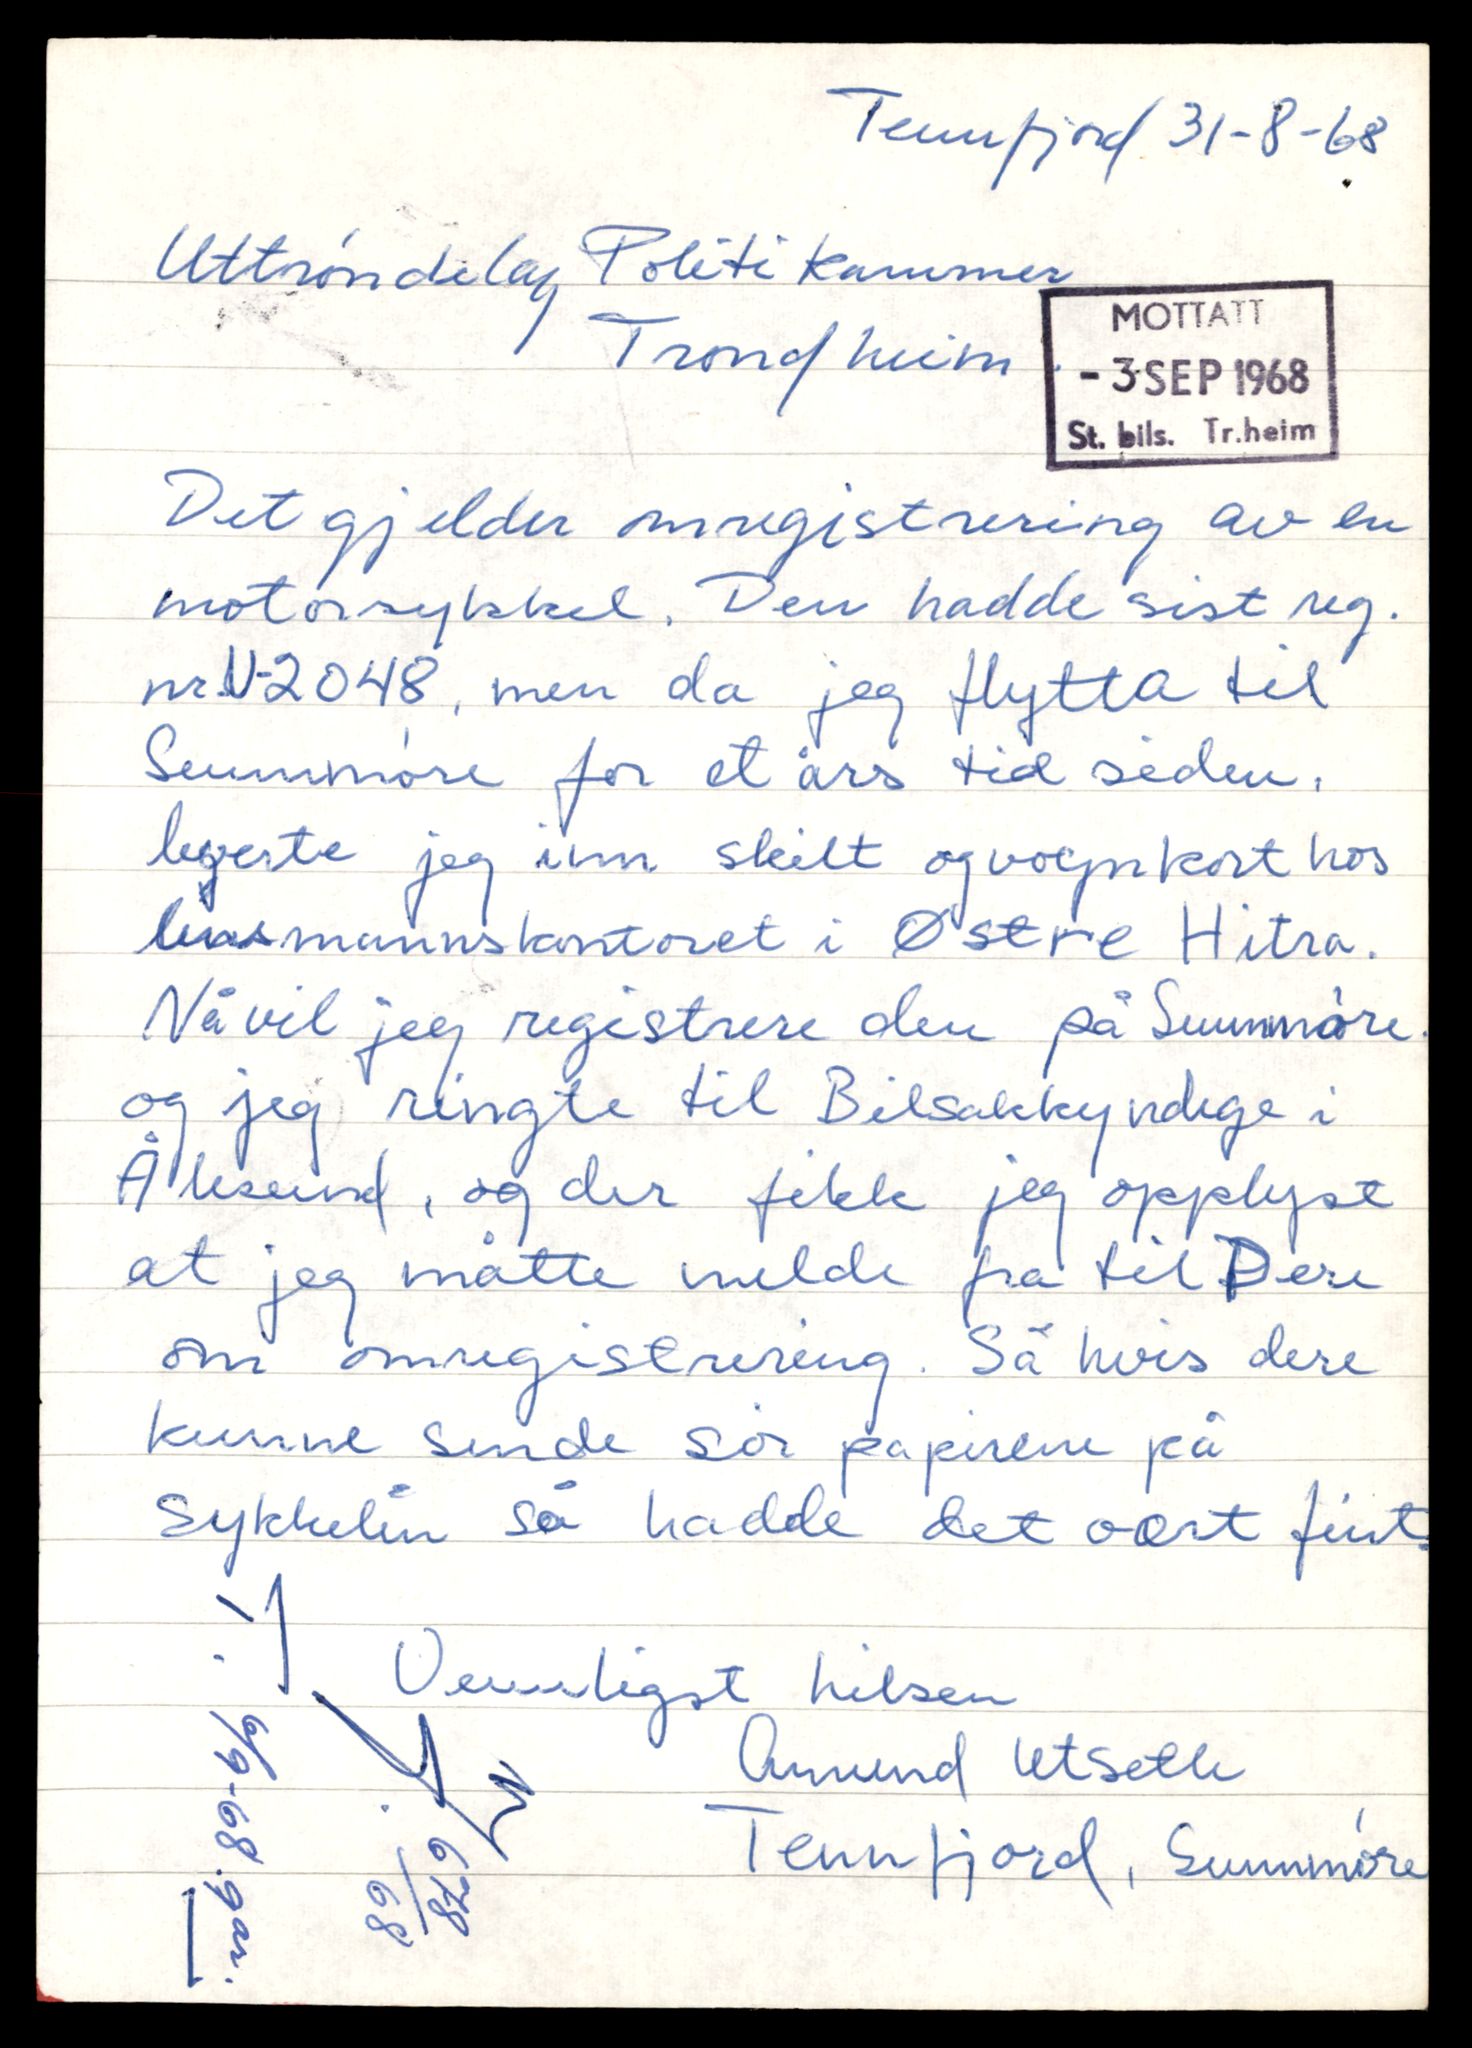 Tennfjord 31-8-68
Uttrøndelag Politikammer
Trondheim.
MOTTATT
- 3 SEP 1968
St. bils. Tr.heim
Det gjelder omregistrering av en
motorsykkel. Den hadde sist reg.
nr. U-2048, men da jeg flytta til
Sunnmøre for et års tid siden,
leverte jeg inn skilt og vognkort hos
lensmannskontoret i Østre Hitra.
Nå vil jeg registrere den på Sunnmøre.
og jeg ringte til Bilsakkyndige i
Ålesund, og der fikk jeg opplyst
at jeg måtte melde fra til Dere
om omregistrering. Så hvis dere
kunne sende sør papirene på
sykkelen så hadde det vært fint.
Vennligst hilsen
Amund Utseth
Tennfjord, Sunnmøre
6/9-68.
678/68